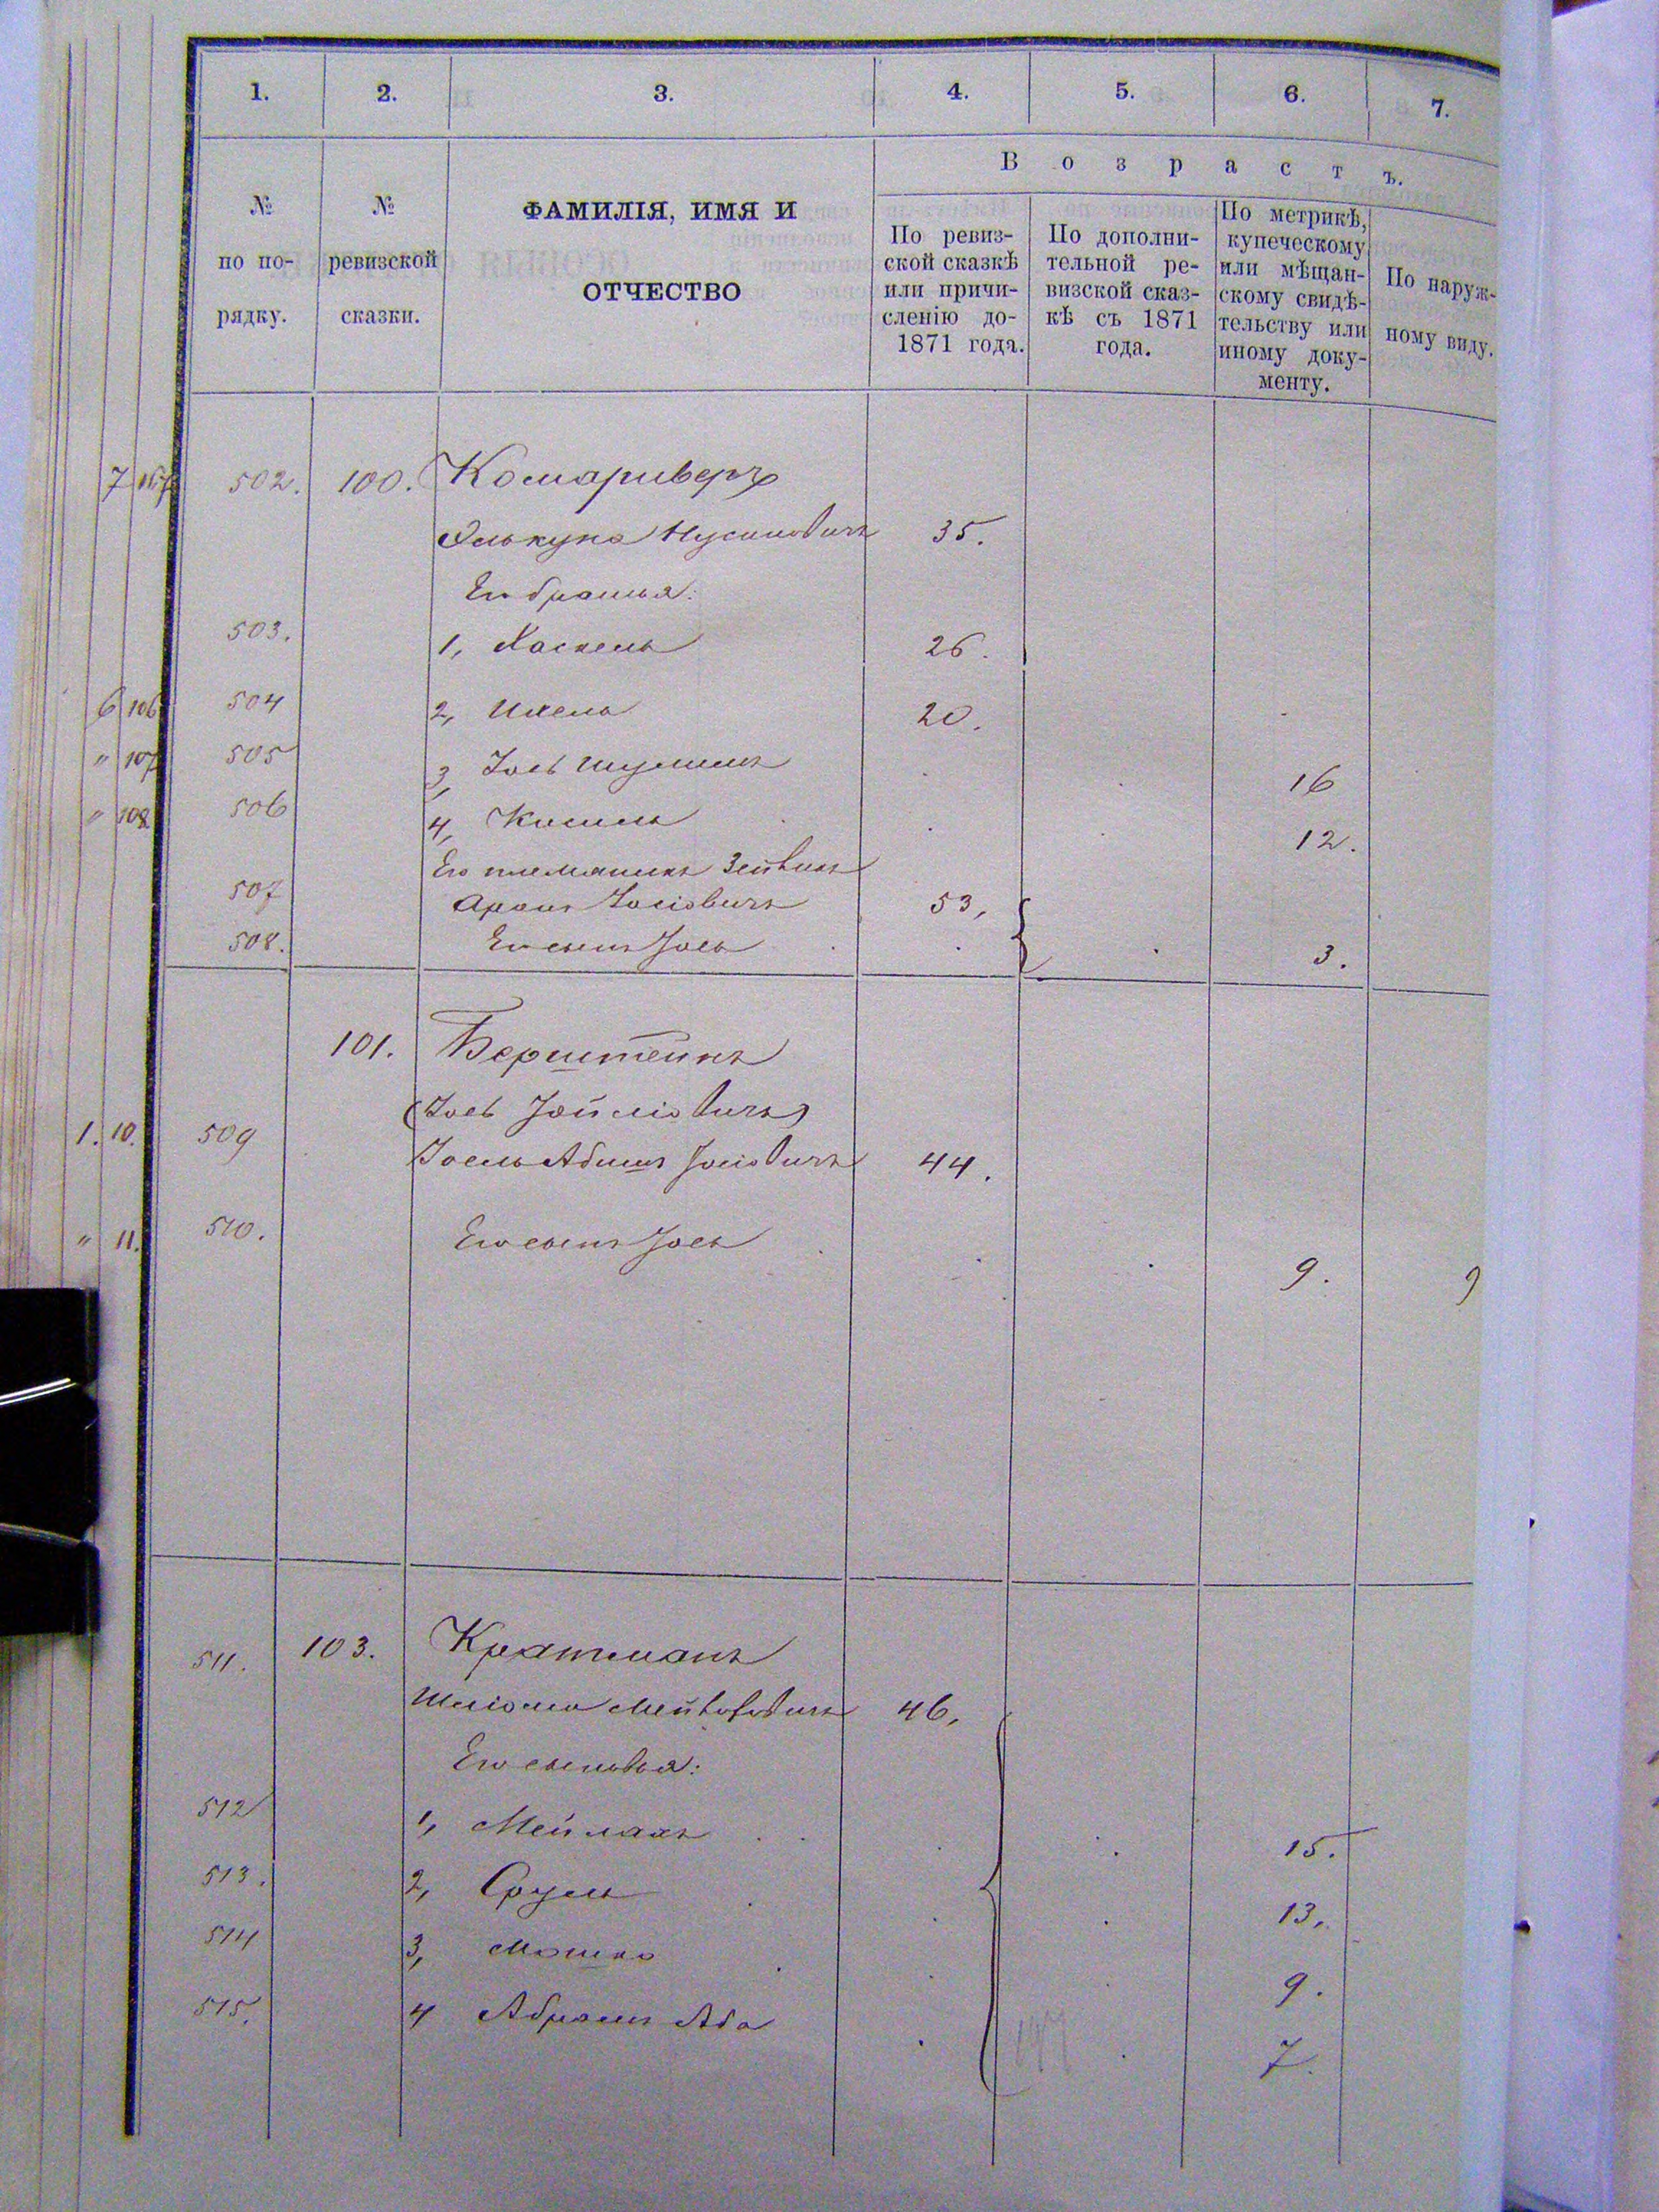 1. 2. 3. 4. 5. 6. 7.
№ по по-рядку.
№ ревизской сказки.
ФАМИЛІЯ, ИМЯ И
ОТЧЕСТВО
Возрастъ.
По ревиз-
ской сказкѣ
или причи-
сленію до-
1871 года.
По дополни-
тельной ре-
визской сказ-
кѣ съ 1871
года.
По метрикѣ,
купеческому
или мѣщан-
скому свидѣ-
тельству или
иному доку-
менту.
По наруж-
ному виду.
7 502. 100. Комариверъ
Нусиновичъ 35.
Его братья:
503. 1, Хаскель 26.
6 106 504 2, Ихель 20.
" 107 505 3, Іось Шулимъ 16
" 108 506 4, Кисиль 12.
Его племяникъ Зейвинъ
507 Аронъ Іосіовичъ 53,
508. Его сынъ Іось 3.
101. Берштейнъ
(Іось Іойліовичъ)
1. 10. 509 Іоель Абишъ Іосіовичъ 44.
" 11. 510. Его сынъ Іось 9. 9
511. 103. Кратманъ
Шліома 46,
Его сыновья:
512 1, Мейлахъ 15.
513. 2, Сруль 13,
514 3, Мошко 9.
515. 4 Абрамъ Аба 7.